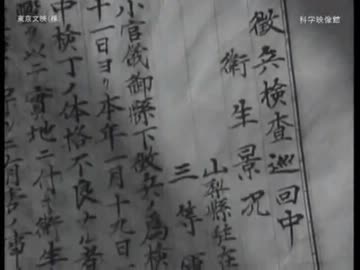 東京文映(株)
科学映像館
徴兵検査巡回中
衛生景况
山梨縣駐在
三等
小官儀御縣下徴兵ノ為検
十一日ヨリ本年一月十九日
中検丁ノ体格不良ナル者
以テ實地ニ付キ衛生